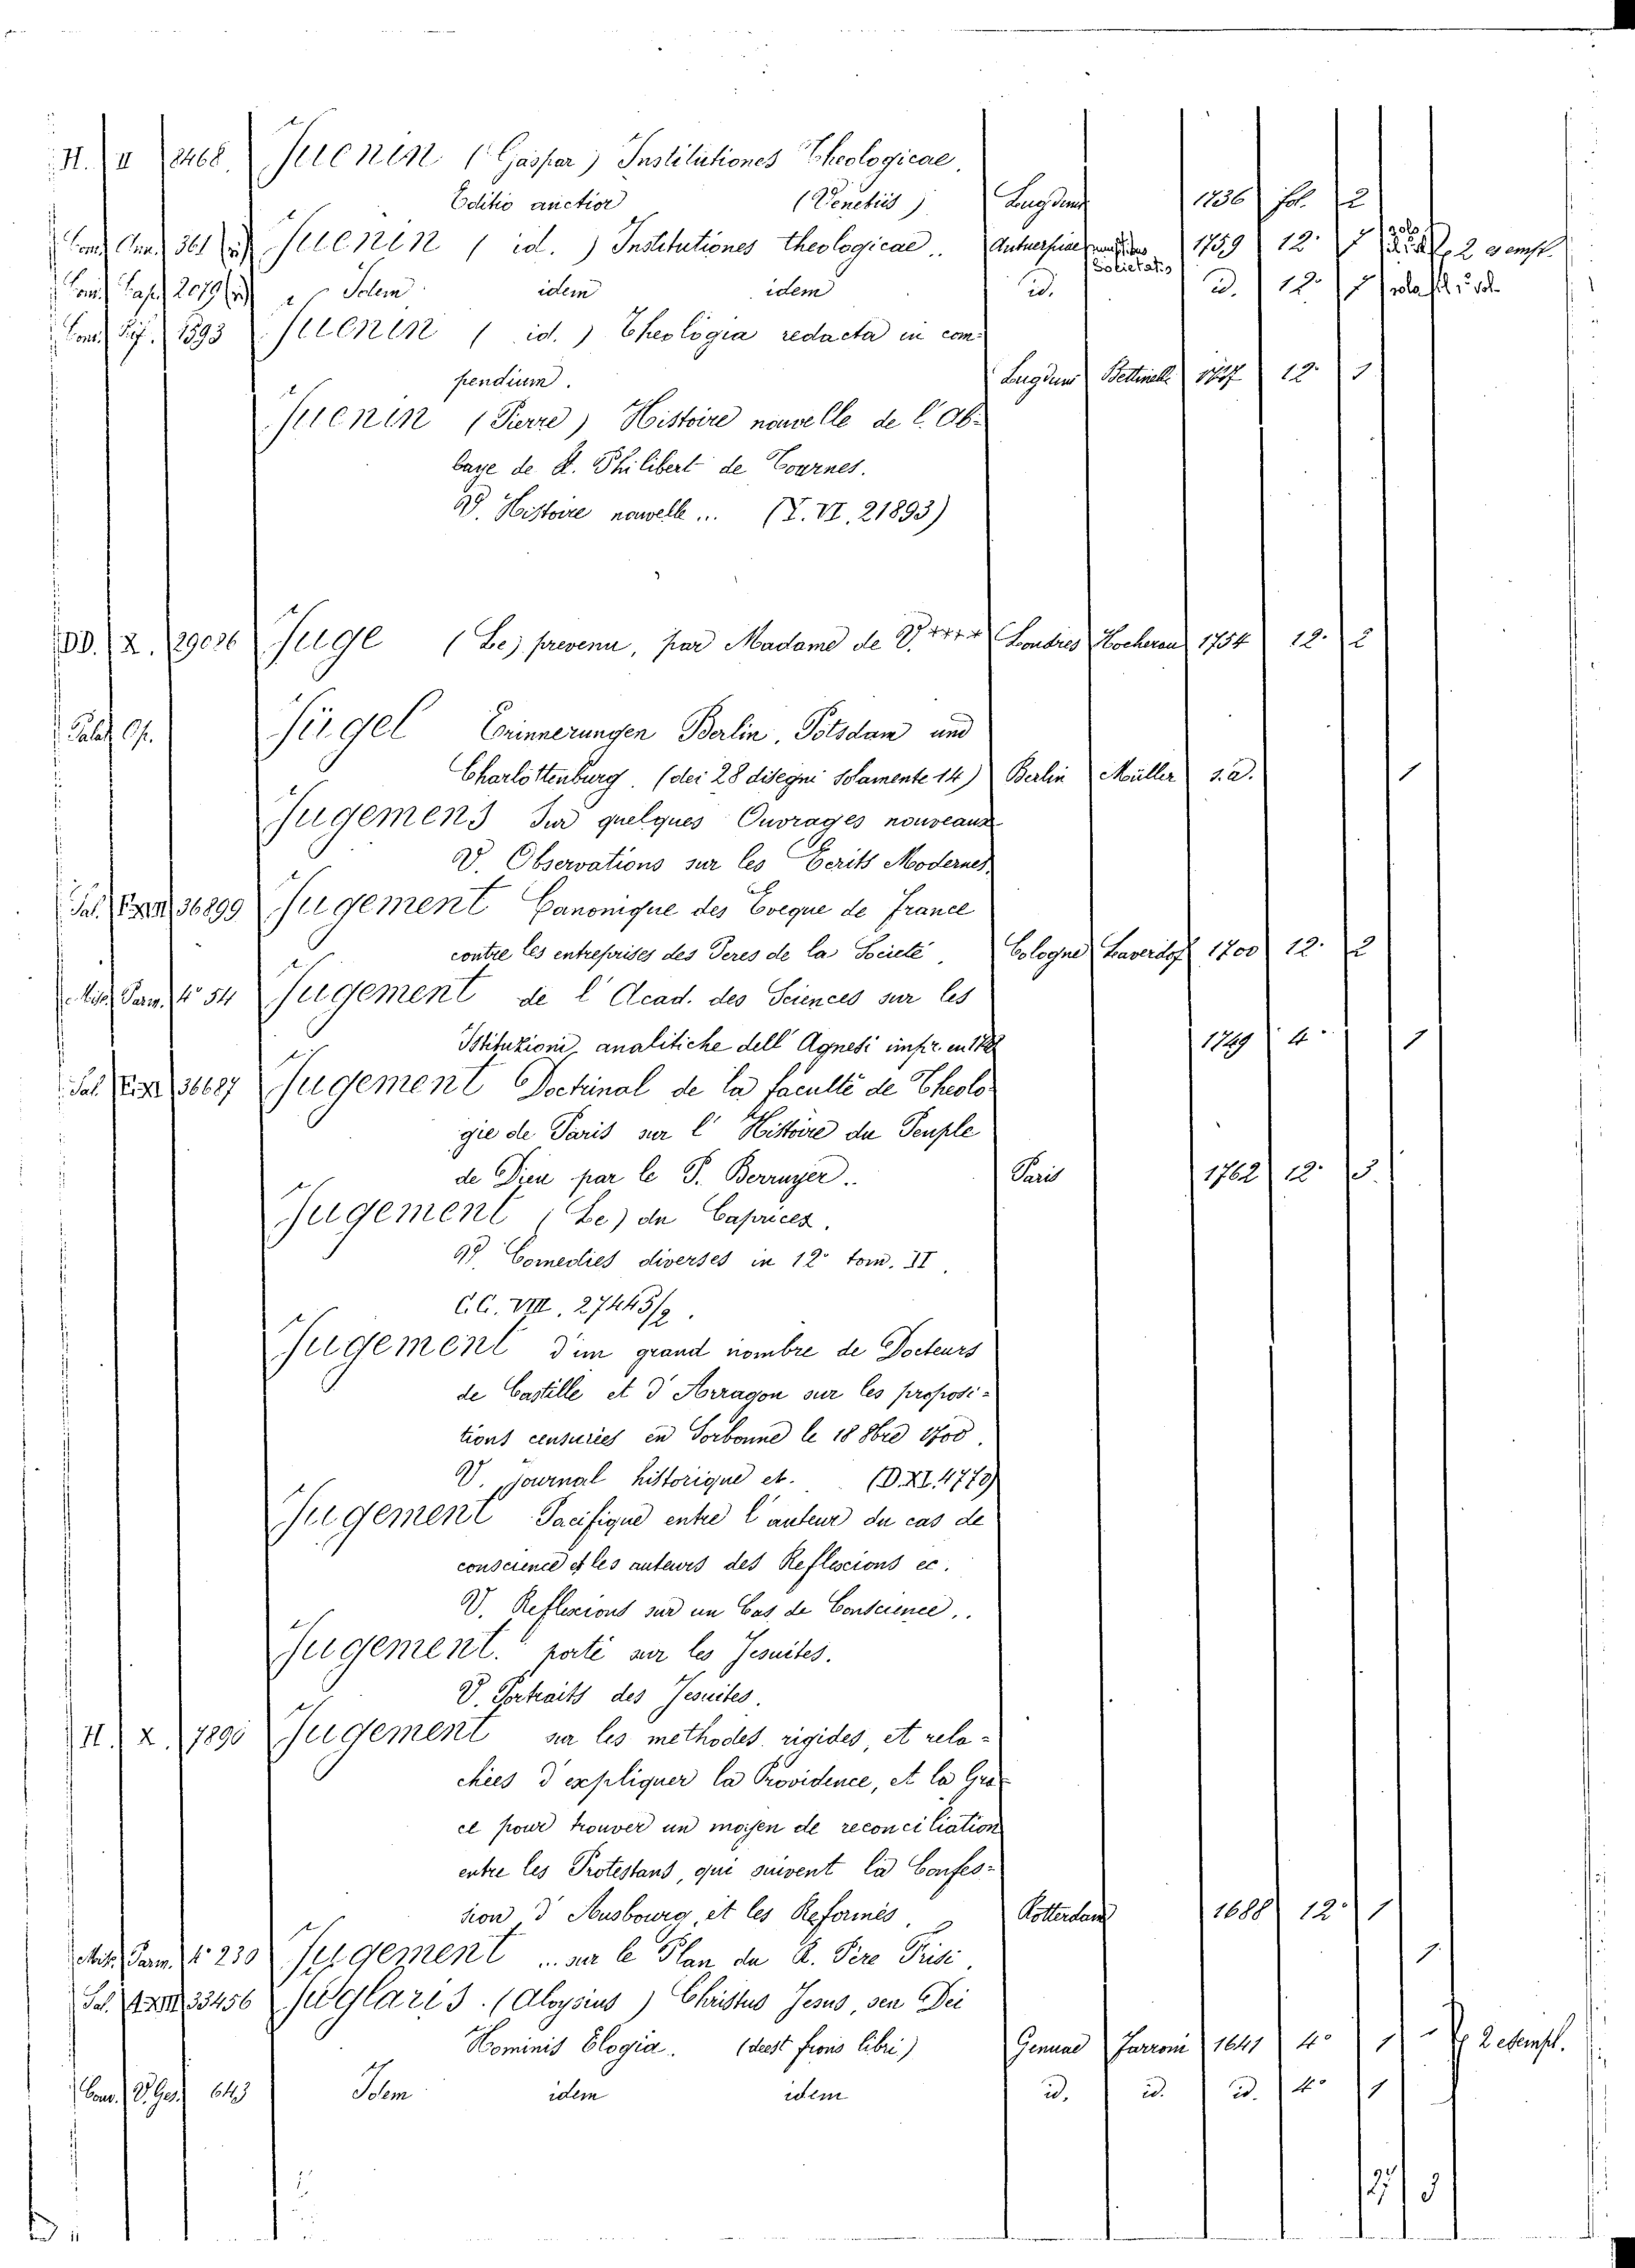 H. II 8468. Juenin (Gaspar) Institutiones Theologicae.
Editio auctior (Venetiis) Lugduni 1736 fol. 2
Conv. 361 Juenin (id.) Institutiones theologicae.. Antuerpiae Societatis 1759 12° 7 2 esempl.
Conv. Cap. 2079 Idem idem idem id. id. 12° 7
Conv. Rif. 1893 Juenin (id.) Theologia redacta in com-
pendium. Lugduni Bettinelli 12° 1
Juenin (Pierre) Histoire nouvelle de l'Ab-
baye de S. Philibert de Tournes.
V. Histoire nouvelle ... (Y. VI. 21893)
DD. X. 29036 Juge (Le) prevenu, par Madame de V.**** Londres Hochereau 1754 12. 2
Palat. Jügel Erinnerungen Berlin, Potsdam und
Charlottenburg. (dei 28 disegni solamente 14) Berlin Müller s.a. 1
Jugemens sur quelques Ouvrages nouveaux
V. Observations sur les Ecrits Modernes.
Sal. 36899 Jugement Canonique des Eveque de France
contre les entreprises des Peres de la Societé. Cologne 1700 12° 2
Misc. Parm. 4° 54 Jugement de l'Acad. des Sciences sur les
Istituzioni analitiche dell'Agnesi impr. en 1749 4° 1
Sal. 36687 Jugement Doctrinal de la faculté de Theolo-
gie de Paris sur l'Histoire du Peuple
de Dieu par le P. Berruyer.. Paris 1762 12° 3.
Jugement (Le) du Caprices.
V. Comedies diverses in 12° tom. II.
CC. VIII. 27443/2.
Jugement d'un grand nombre de Docteurs
de Castille et d'Arragon sur les proposi-
tions censuries en Sorbonne le 18 8bre 1700.
V. journal historique et. (D. XI. 4779)
Jugement Pacifique entre l'auteur du cas de
conscience et les auteurs des Reflexions ec.
V. Reflexions sur un Cas de Conscience..
Jugement. porté sur les Jesuites.
V. Portraits des Jesuites.
H. X. 7890 Jugement sur les methodes rigides, et rela-
chées d'expliquer la Providence, et la Gra-
ce pour trouver un moyen de reconciliation
entre les Protestans, qui suivent la Confes-
sion d'Ausbourg, et les Reformés. Rotterdam 1688 12° 1
Misc. Parm. 4° 230 Jugement ... sur le Plan du R. Pere Prisi. 1
Sal. 33456 Juglaris. (Aloysius) Christus Jesus, seu Dei
Hominis Elogia. (deest frons libri) Genuae 1641 4° 1 2 esempl.
Conv. 643 Idem idem idem id. id. id. 4° 1